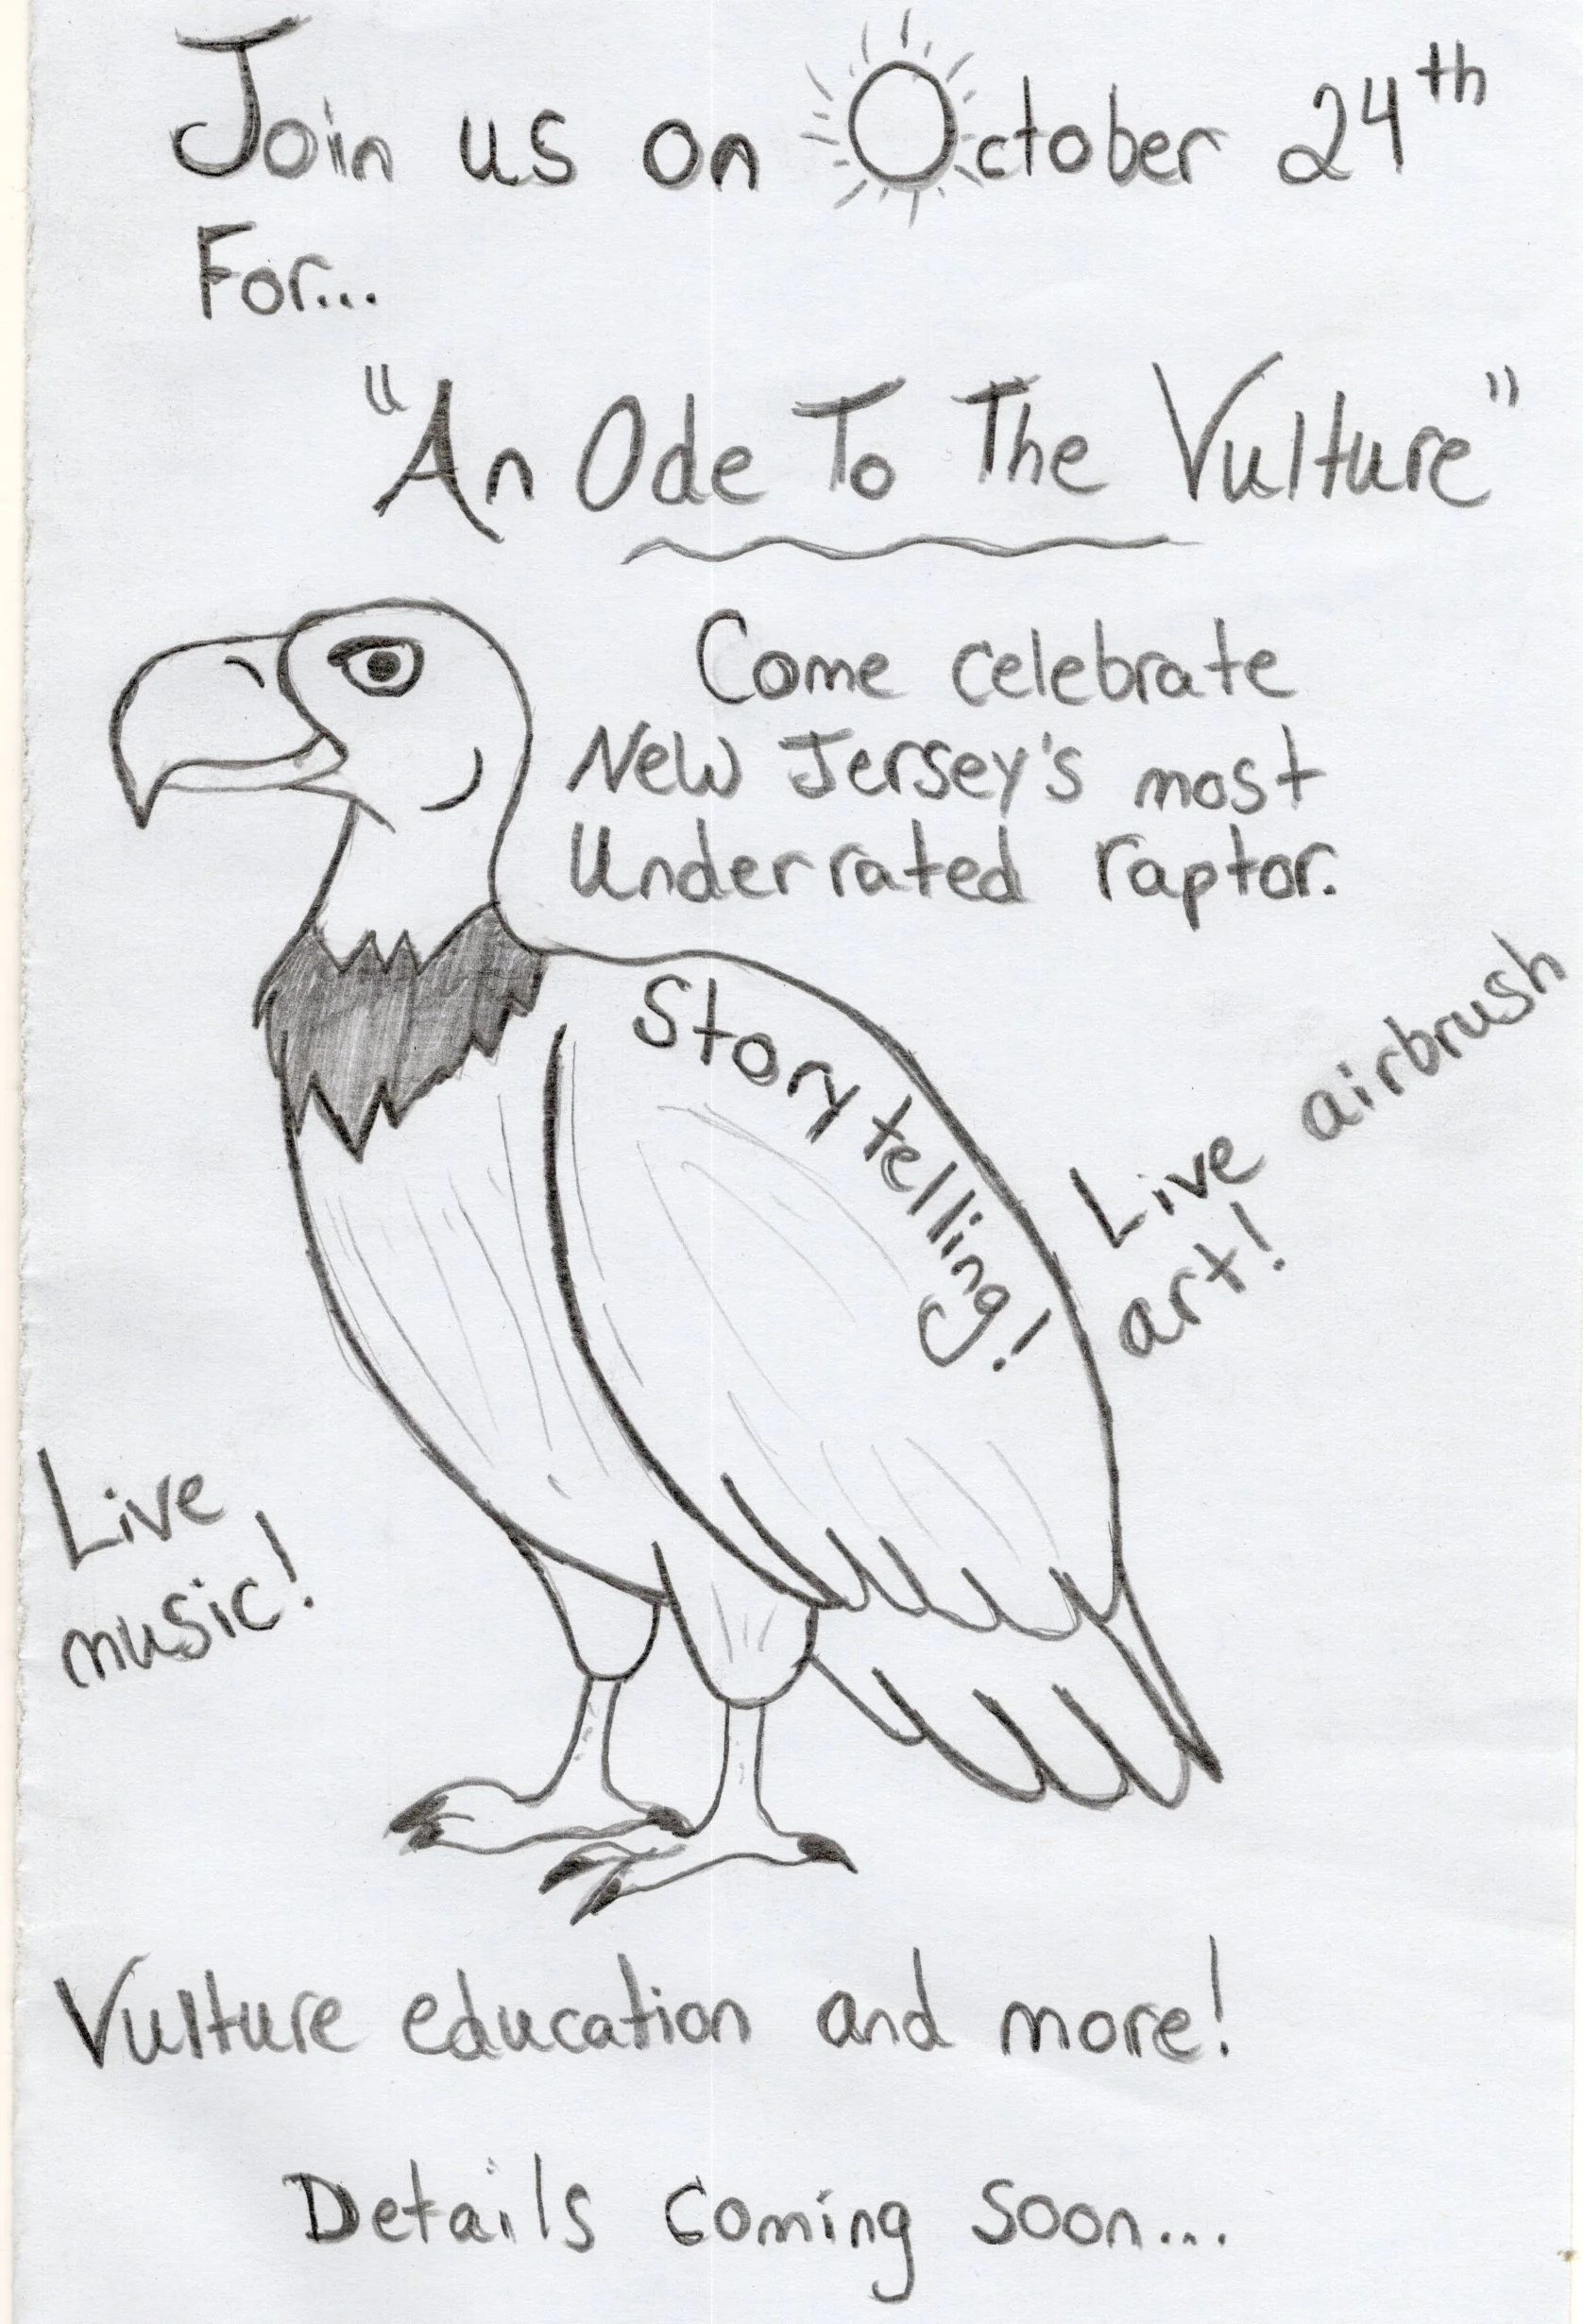 Join us on October 24th
For...
"An Ode To The Vulture"
Come celebrate
New Jersey's most
Underrated raptor.
Storytelling!
Live airbrush
art!
Live
music!
Vulture education and more!
Details Coming Soon...